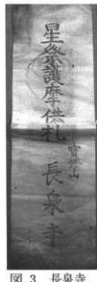 星祭護摩供札
寶光山
長泉寺
図 3. 長泉寺